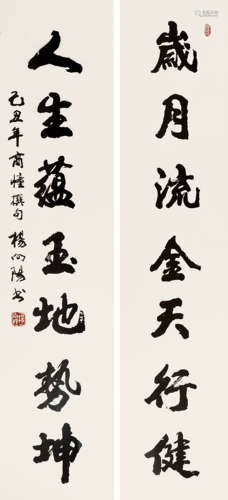 歲月流金天行健
人生蘊玉地勢坤
己丑年商愷撰句楊向陽书